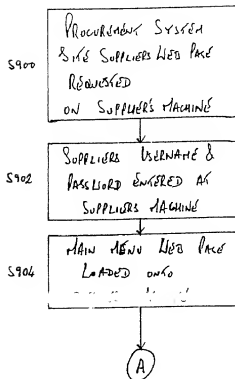 S900
PROCUREMENT SYSTEM
SITE SUPPLIERS WEB PAGE
REQUESTED
ON SUPPLIER'S MACHINE
S902
SUPPLIERS USERNAME &
PASSWORD ENTERED AT
SUPPLIERS MACHINE
S904
MAIN MENU WEB PAGE
LOADED ONTO
A